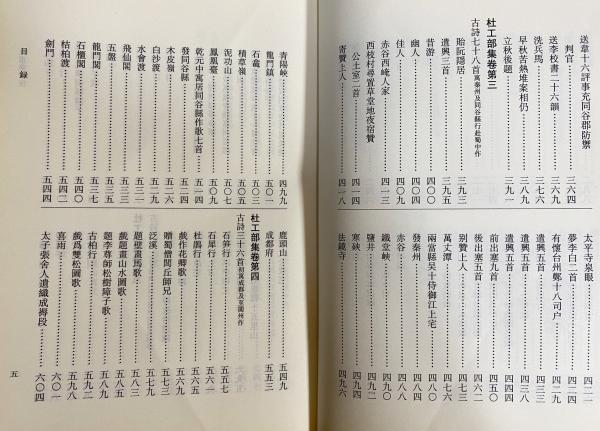 送韋十六評事充同谷郡防禦
判官……三六四
送李校書二十六韻……三六七
洗兵馬……三七六
早秋苦熱堆案相仍……三八九
立秋後題……三九一
杜工部集卷第三
古詩七十八首寓秦州及同谷縣行赴蜀中作
貽阮隱居……三九三
遣興三首……三九五
昔游……四〇〇
佳人……四〇四
幽人……四〇九
赤谷西崦人家……四一三
西枝村尋置草堂地夜宿贊
公土室二首……四一四
寄贊上人……四一八
太平寺泉眼……四二一
夢李白二首……四二四
有懷台州鄭十八司户……四二九
遣興五首……四三三
遣興五首……四三八
遣興五首……四四四
前出塞九首……四五〇
後出塞五首……四六二
別贊上人……四七三
萬丈潭……四七六
兩當縣吳十侍御江上宅……四八〇
發秦州……四八四
赤谷……四八八
鐵堂峽……四九〇
鹽井……四九二
寒硤……四九四
法鏡寺……四九六
青陽峽……四九九
龍門鎮……五〇一
石龕……五〇三
積草嶺……五〇五
泥功山……五〇七
鳳凰臺……五〇九
乾元中寓居同谷縣作歌七首
發同谷縣……五二四
木皮嶺……五二六
白沙渡……五二九
水會渡……五三一
飛仙閣……五三三
五盤……五三五
龍門閣……五三七
石櫃閣……五三九
桔柏渡……五四二
劍門……五四四
鹿頭山……五四九
成都府……五五三
杜工部集卷第四
古詩三十六首初寓成都及至閬州作
石笋行……五五七
石犀行……五六一
杜鵑行……五六五
戲作花卿歌……五六九
贈蜀僧閭丘師兄……五七三
泛溪……五七九
題壁畫馬歌……五八三
戲題畫山水圖歌……五八五
題李尊師松樹障子歌……五八九
古柏行……五九二
戲爲雙松圖歌……五九八
喜雨……六〇一
太子張舍人遺織成褥段……六〇四
目録
五